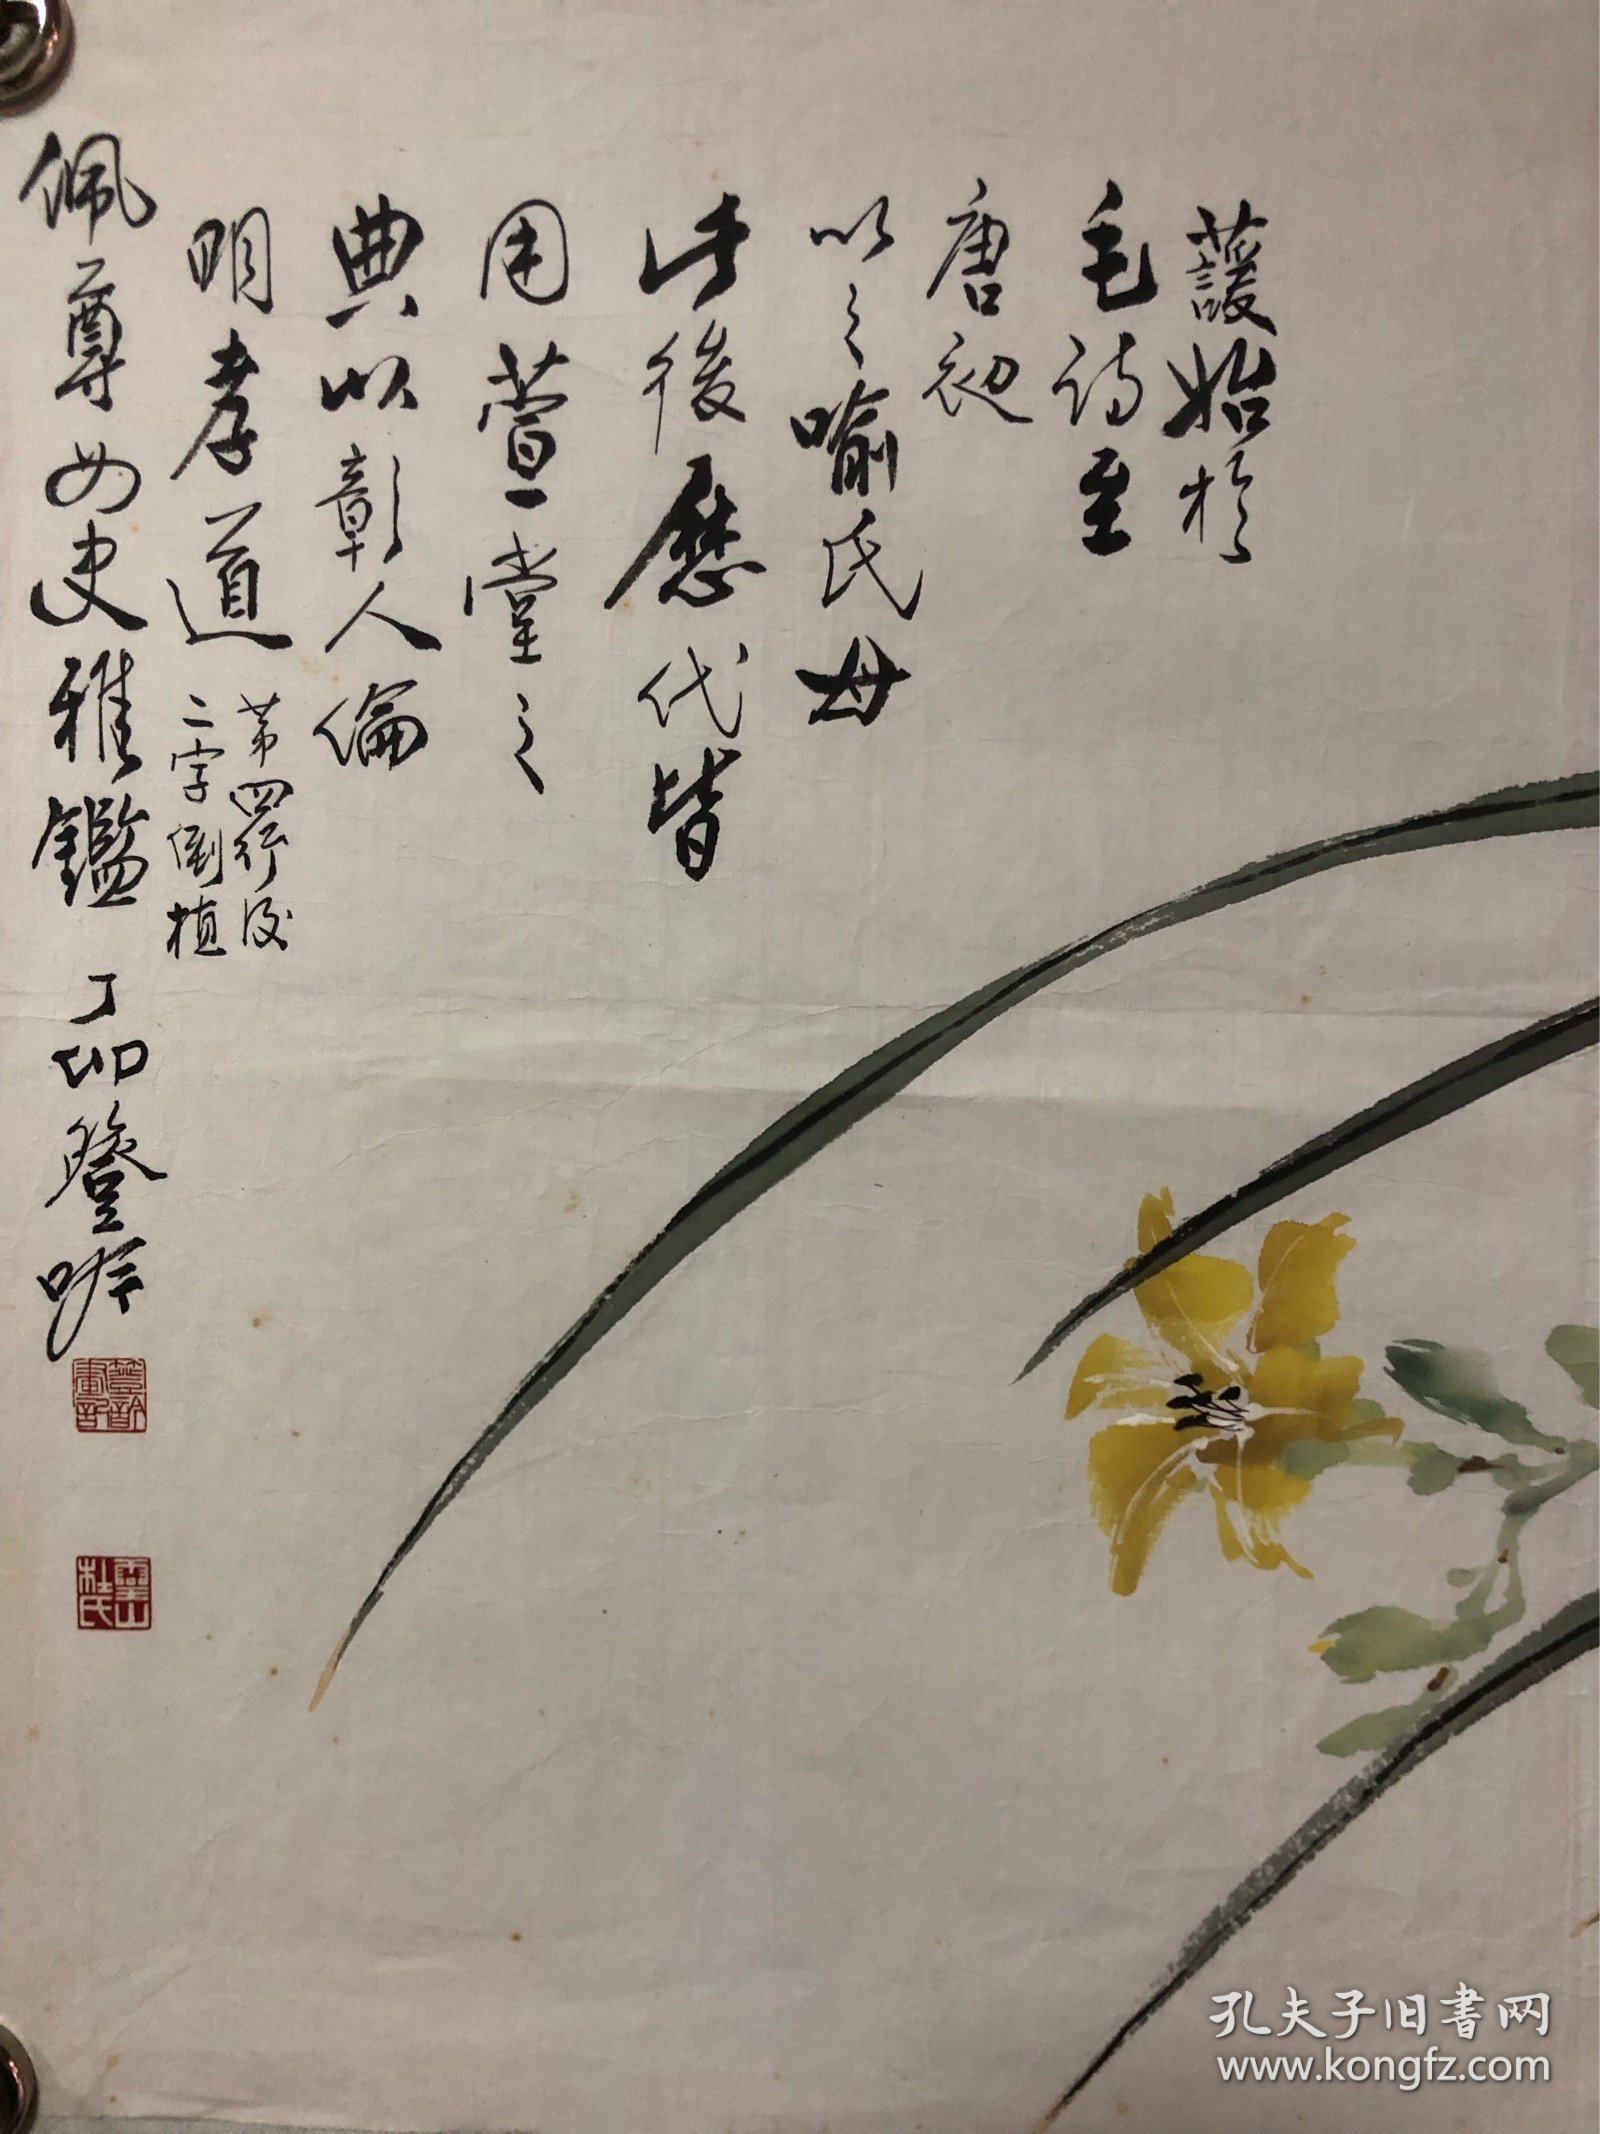 蘐始於
毛詩至
唐初
以之喻氏母
此後歷代皆
用萱堂之
典以彰人倫
明孝道
第四行後
二字倒植
佩尊女史雅鑑 丁卯簦
杜氏
孔夫子旧书网
www.kongfz.com